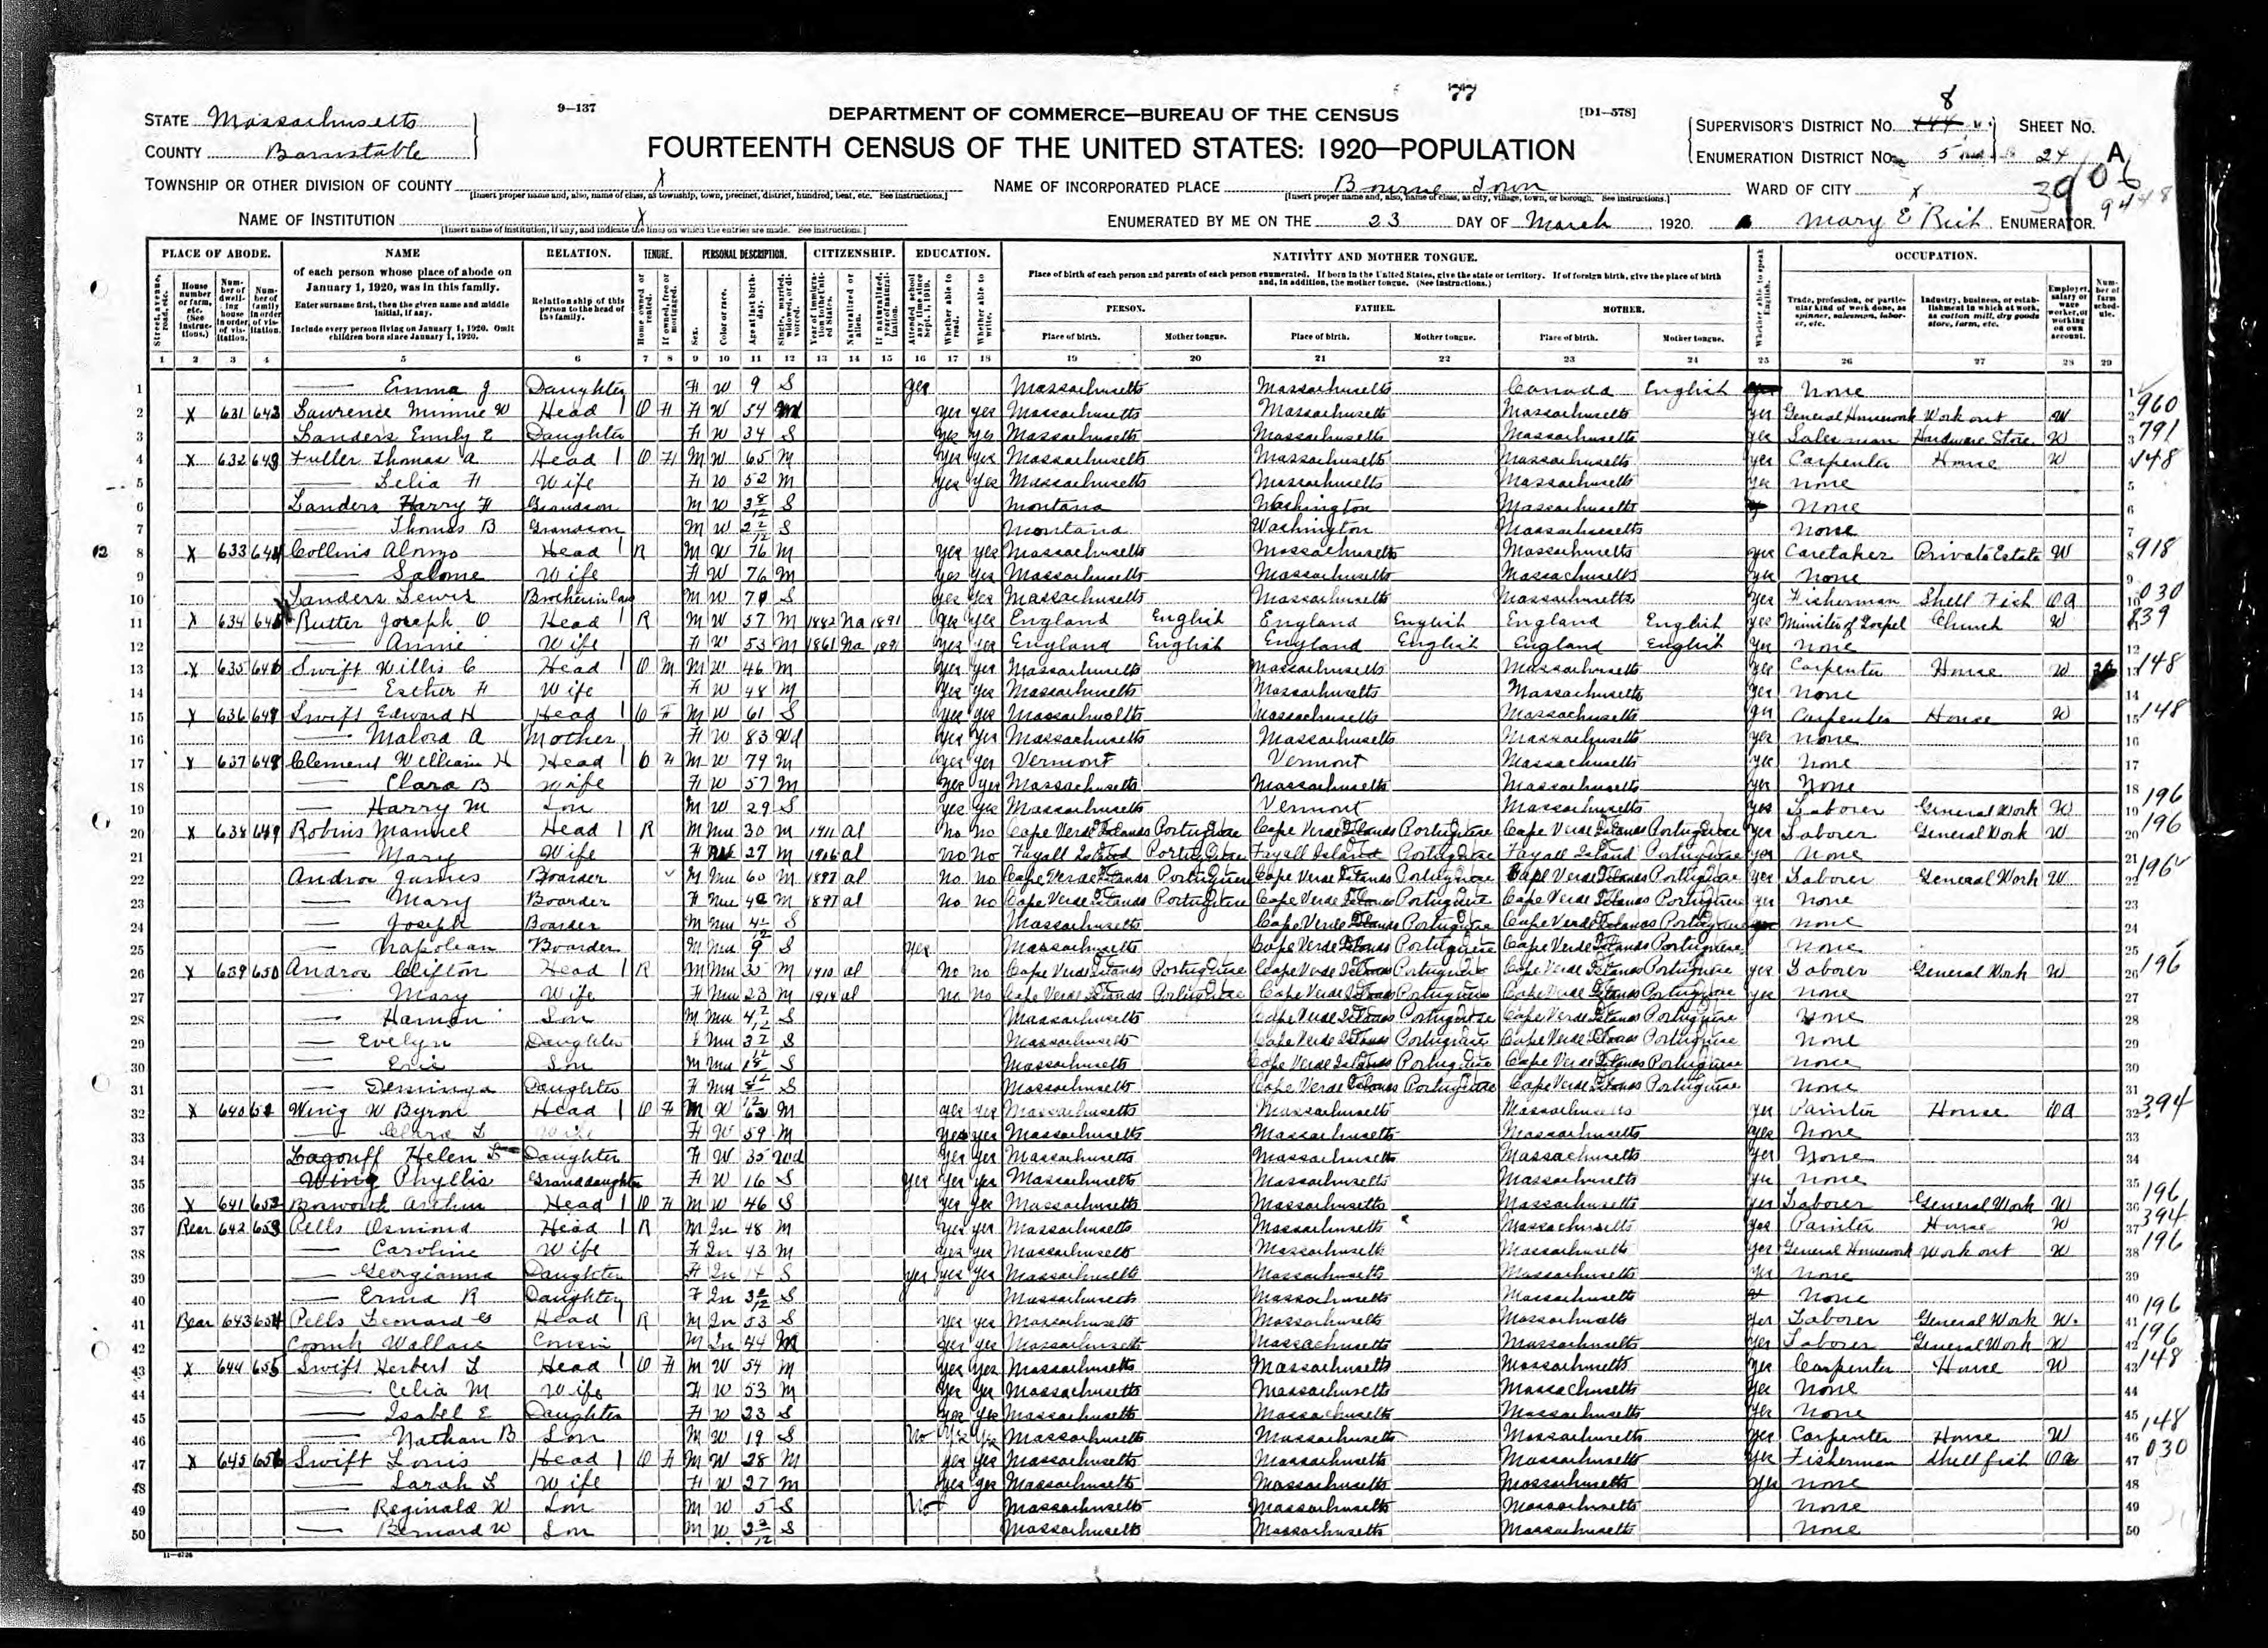 77
9—137
DEPARTMENT OF COMMERCE—BUREAU OF THE CENSUS
[D1—578]
8
STATE Massachusetts
COUNTY Barnstable
FOURTEENTH CENSUS OF THE UNITED STATES: 1920—POPULATION
SUPERVISOR'S DISTRICT No. SHEET No.
ENUMERATION DISTRICT No. 5 24 A
TOWNSHIP OR OTHER DIVISION OF COUNTY X NAME OF INCORPORATED PLACE Bourne Town WARD OF CITY X
[Insert proper name and, also, name of class, as township, town, precinct, district, hundred, beat, etc. See instructions.] [Insert proper name and, also, name of class, as city, village, town, or borough. See instructions.]
NAME OF INSTITUTION X ENUMERATED BY ME ON THE 23 DAY OF March, 1920. Mary E Rich ENUMERATOR.
[Insert name of institution, if any, and indicate the lines on which the entries are made. See instructions.]
PLACE OF ABODE. NAME RELATION. TENURE. PERSONAL DESCRIPTION. CITIZENSHIP. EDUCATION. NATIVITY AND MOTHER TONGUE. OCCUPATION.
of each person whose place of abode on January 1, 1920, was in this family.
Enter surname first, then the given name and middle initial, if any.
Include every person living on January 1, 1920. Omit children born since January 1, 1920.
Relationship of this person to the head of the family.
Place of birth of each person and parents of each person enumerated. If born in the United States, give the state or territory. If of foreign birth, give the place of birth and, in addition, the mother tongue. (See instructions.)
PERSON. FATHER. MOTHER.
Place of birth. Mother tongue. Place of birth. Mother tongue. Place of birth. Mother tongue.
Trade, profession, or particular kind of work done, as spinner, salesman, laborer, etc.
Industry, business, or establishment in which at work, as cotton mill, dry goods store, farm, etc.
Employer, salary or wage worker, or working on own account.
Number of farm schedule.
1 2 3 4 5 6 7 8 9 10 11 12 13 14 15 16 17 18 19 20 21 22 23 24 25 26 27 28 29
1 — Emma J Daughter F W 9 S yes Massachusetts Massachusetts Canada English None
2 X 631 Lawrence Minnie W Head O F F W 54 yes yes Massachusetts Massachusetts Massachusetts yes General Housework Work out W 960
3 Landers Emily E Daughter F W 34 S yes yes Massachusetts Massachusetts Massachusetts yes Salesman Hardware Store W 791
4 X 632 Fuller Thomas A Head O F M W 65 M yes yes Massachusetts Massachusetts Massachusetts yes Carpenter House W 148
5 — Lelia F Wife F W 52 M yes yes Massachusetts Massachusetts Massachusetts yes None
6 Landers Harry F Grandson M W 3 8/12 S Montana Washington Massachusetts None
7 — Thomas B Grandson M W S Montana Washington Massachusetts None
8 X 633 644 Collins Alonzo Head R M W 76 M yes yes Massachusetts Massachusetts Massachusetts yes Caretaker Private Estate W 918
9 — Salome Wife F W 76 M yes yes Massachusetts Massachusetts Massachusetts yes None
10 Landers Lewis Brother in law M W 70 S yes yes Massachusetts Massachusetts Massachusetts yes Fisherman Shell Fish OA 030
11 X 634 645 Rutter Joseph O Head R M W 57 M 1882 Na 1891 yes yes England English England English England English yes Minister of Gospel Church W 839
12 — Annie Wife F W 53 M 1861 Na yes yes England English England English England English yes None
13 X 635 646 Swift Willis C Head O M M W 46 M yes yes Massachusetts Massachusetts Massachusetts yes Carpenter House W 148
14 — Esther F Wife F W 48 M yes yes Massachusetts Massachusetts Massachusetts yes None
15 X 636 647 Swift Edward H Head O F M W 61 S yes yes Massachusetts Massachusetts Massachusetts yes Carpenter House W 148
16 — Malora A Mother F W 83 Wd yes yes Massachusetts Massachusetts Massachusetts yes None
17 X 637 648 Clement William H Head O F M W 79 M yes yes Vermont Vermont Massachusetts yes None
18 — Clara B Wife F W 57 M yes yes Massachusetts Massachusetts Massachusetts yes None
19 — Harry M Son M W 29 S yes yes Massachusetts Vermont Massachusetts yes Laborer General Work W 196
20 X 638 649 Robins Manuel Head R M Mu 30 M 1911 al no no Cape Verde Islands Portuguese Cape Verde Islands Portuguese Cape Verde Islands Portuguese yes Laborer General Work W 196
21 — Mary Wife F 27 M 1906 al no no Fayall Island Portuguese Fayall Island Portuguese Fayall Island Portuguese yes None
22 Androe James Boarder M Mu 60 M 1897 al no no Cape Verde Islands Portuguese Cape Verde Islands Portuguese Cape Verde Islands Portuguese yes Laborer General Work W 196
23 — Mary Boarder F Mu M 1897 al no no Cape Verde Islands Portuguese Cape Verde Islands Portuguese Cape Verde Islands Portuguese yes None
24 — Joseph Boarder M Mu S Massachusetts Cape Verde Islands Portuguese Cape Verde Islands Portuguese None
25 — Napolean Boarder M Mu 9 S yes Massachusetts Cape Verde Islands Portuguese Cape Verde Islands Portuguese None
26 X 639 650 Androe Clifton Head R M Mu 35 M 1910 al no no Cape Verde Islands Portuguese Cape Verde Islands Portuguese Cape Verde Islands Portuguese yes Laborer General Work W 196
27 — Mary Wife F Mu 23 M 1914 al no no Cape Verde Islands Portuguese Cape Verde Islands Portuguese Cape Verde Islands Portuguese yes None
28 — Son M Mu 4 2/12 S Massachusetts Cape Verde Islands Portuguese Cape Verde Islands Portuguese None
29 — Evelyn Daughter F Mu S Massachusetts Cape Verde Islands Portuguese Cape Verde Islands Portuguese None
30 — Son M Mu S Massachusetts Cape Verde Islands Portuguese Cape Verde Islands Portuguese None
31 — Daughter F Mu S Massachusetts Cape Verde Islands Portuguese Cape Verde Islands Portuguese None
32 X 640 Wing W Byron Head O F M W M yes yes Massachusetts Massachusetts Massachusetts yes Painter House OA 394
33 — Clara L Wife F W 59 M yes yes Massachusetts Massachusetts Massachusetts yes None
34 Helen Daughter F W 35 Wd yes yes Massachusetts Massachusetts Massachusetts yes None
35 Wing Phyllis Granddaughter F W 16 S yes yes yes Massachusetts Massachusetts Massachusetts yes None
36 X 641 652 Bosworth Arthur Head O F M W 46 S yes yes Massachusetts Massachusetts Massachusetts yes Laborer General Work W 196
37 Rear 642 653 Pells Osmond Head R M In 48 M yes yes Massachusetts Massachusetts Massachusetts yes Painter House W 394
38 — Caroline Wife F In 43 M yes yes Massachusetts Massachusetts Massachusetts yes General Housework Work out W 196
39 — Georgianna Daughter F In 14 S yes yes yes Massachusetts Massachusetts Massachusetts yes None
40 — Erma R Daughter F In S Massachusetts Massachusetts Massachusetts None
41 Rear 643 654 Pells Leonard G Head R M In 53 S yes yes Massachusetts Massachusetts Massachusetts yes Laborer General Work W 196
42 Wallace Cousin M In 44 yes yes Massachusetts Massachusetts Massachusetts yes Laborer General Work W 196
43 X 644 655 Swift Herbert L Head O F M W 54 M yes yes Massachusetts Massachusetts Massachusetts yes Carpenter House W 148
44 — Celia M Wife F W 53 M yes yes Massachusetts Massachusetts Massachusetts yes None
45 — Isabel E Daughter F W 23 S yes yes Massachusetts Massachusetts Massachusetts yes None
46 — Nathan B Son M W 19 S No yes yes Massachusetts Massachusetts Massachusetts yes Carpenter House W 148
47 X 645 656 Swift Louis Head O F M W 28 M yes yes Massachusetts Massachusetts Massachusetts yes Fisherman Shell fish OA 030
48 — Sarah L Wife F W 27 M yes yes Massachusetts Massachusetts Massachusetts yes None
49 — Reginald W Son M W 5 S No Massachusetts Massachusetts Massachusetts None
50 — Bernard W Son M W S Massachusetts Massachusetts Massachusetts None